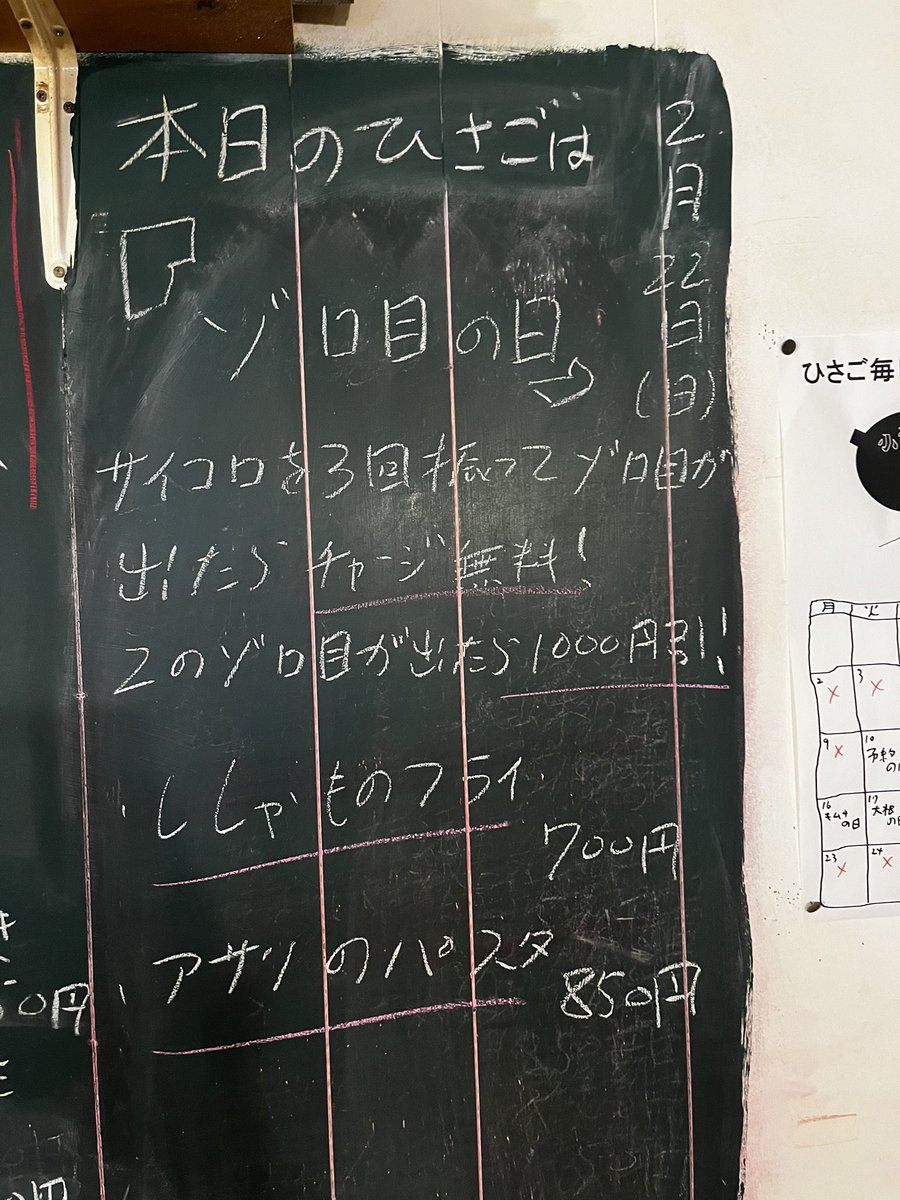 本日のひさごは
2月22日(日)
ゾロ目の日
サイコロを3回振ってゾロ目が
出たらチャージ無料!
2のゾロ目が出たら1000円引!
・ししゃものフライ
700円
・アサリのパスタ
850円
50円
円
ひさご毎
月 火
2 3
9 10
予約
16 17
キムチの日 大根の日
23 24